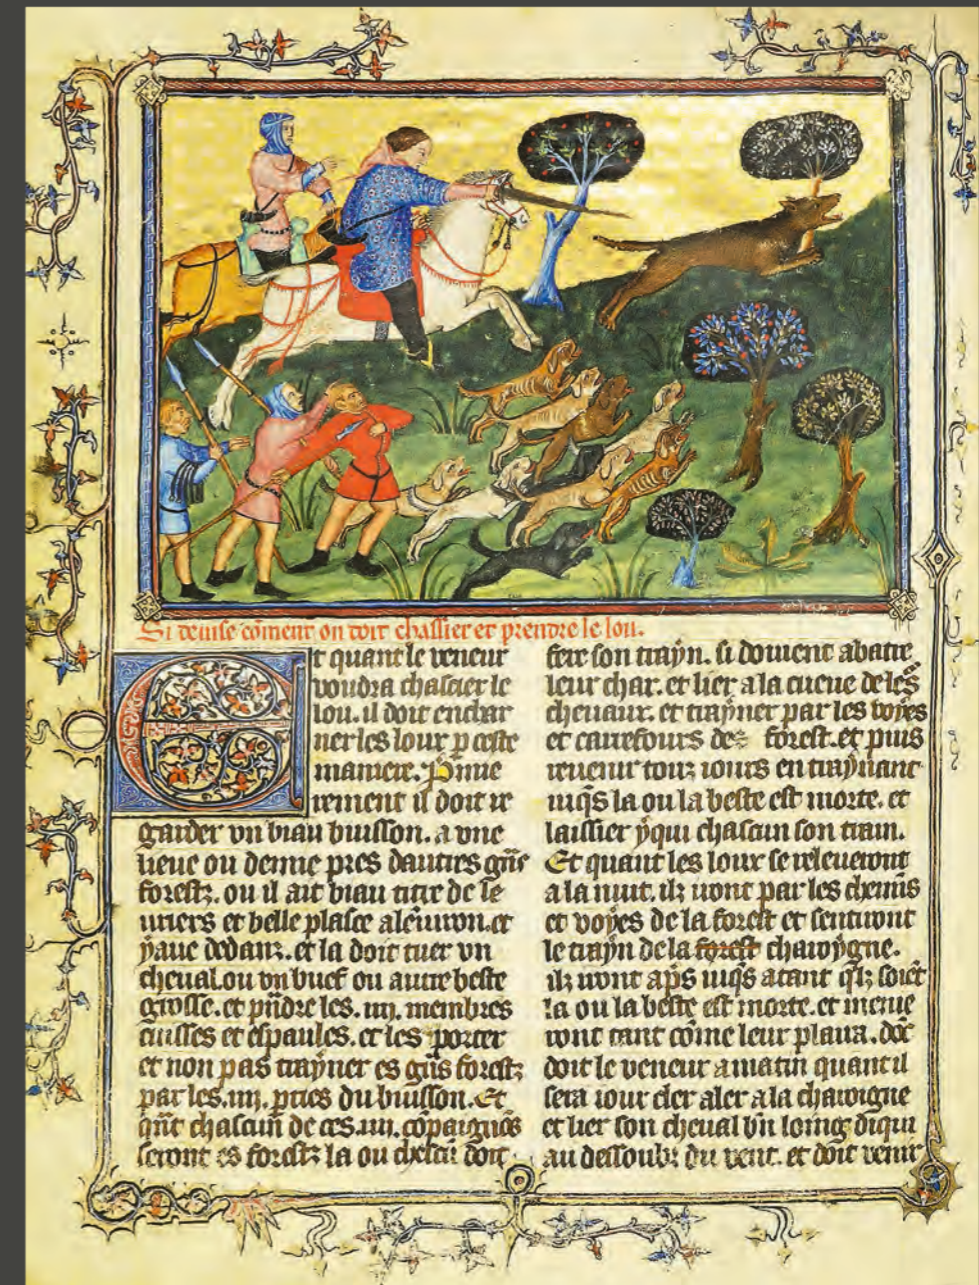 Si deuise cōment on doit chassier et prendre le lou.
Et quant le veneur
voudra chascier le
lou. il doit enchar
ner les loux p ceste
maniere. Pͥmie
rement il doit re
garder vn biau buisson. a vne
lieue ou demie pres dautres gn̄s
forestz. ou il ait biau titre de le
uriers et belle plasce alēuiron. et
yaue dedanz. et la doit tuer vn
cheual. ou vn buef ou autre beste
grosse. et pn̄dre les .iiij. membres
cuisses et espaules. et les porter
et non pas trayner es gn̄s forestz
par les .iiij. pties du buisson. Et
qn̄t chascun de ces .iiij. cōpaignōs
seront es forestz la ou chescū doit
fere son trayn. si doiuent abatre
leur char. et lier a la cueue de les
cheuaux. et trayner par les voyes
et carrefours des forest. et puis
reuenir touz iours en traynant
iuqs̄ la ou la beste est morte. et
laissier yqui chascun son train.
Et quant les loux se releueront
a la nuit. ilz iront par les chemīs
et voyes de la forest et sentiront
le trayn de la forest charoygne.
ilz iront ap̄s iuqs̄ atant qlz soiēt
la ou la beste est morte. et menie
ront tant cōme leur plaira. dōc
doit le veneur a matin quant il
sera iour cler aler a la charoigne
et lier son cheual bn̄ loing diqui
au dessoubz du vent. et doit venir